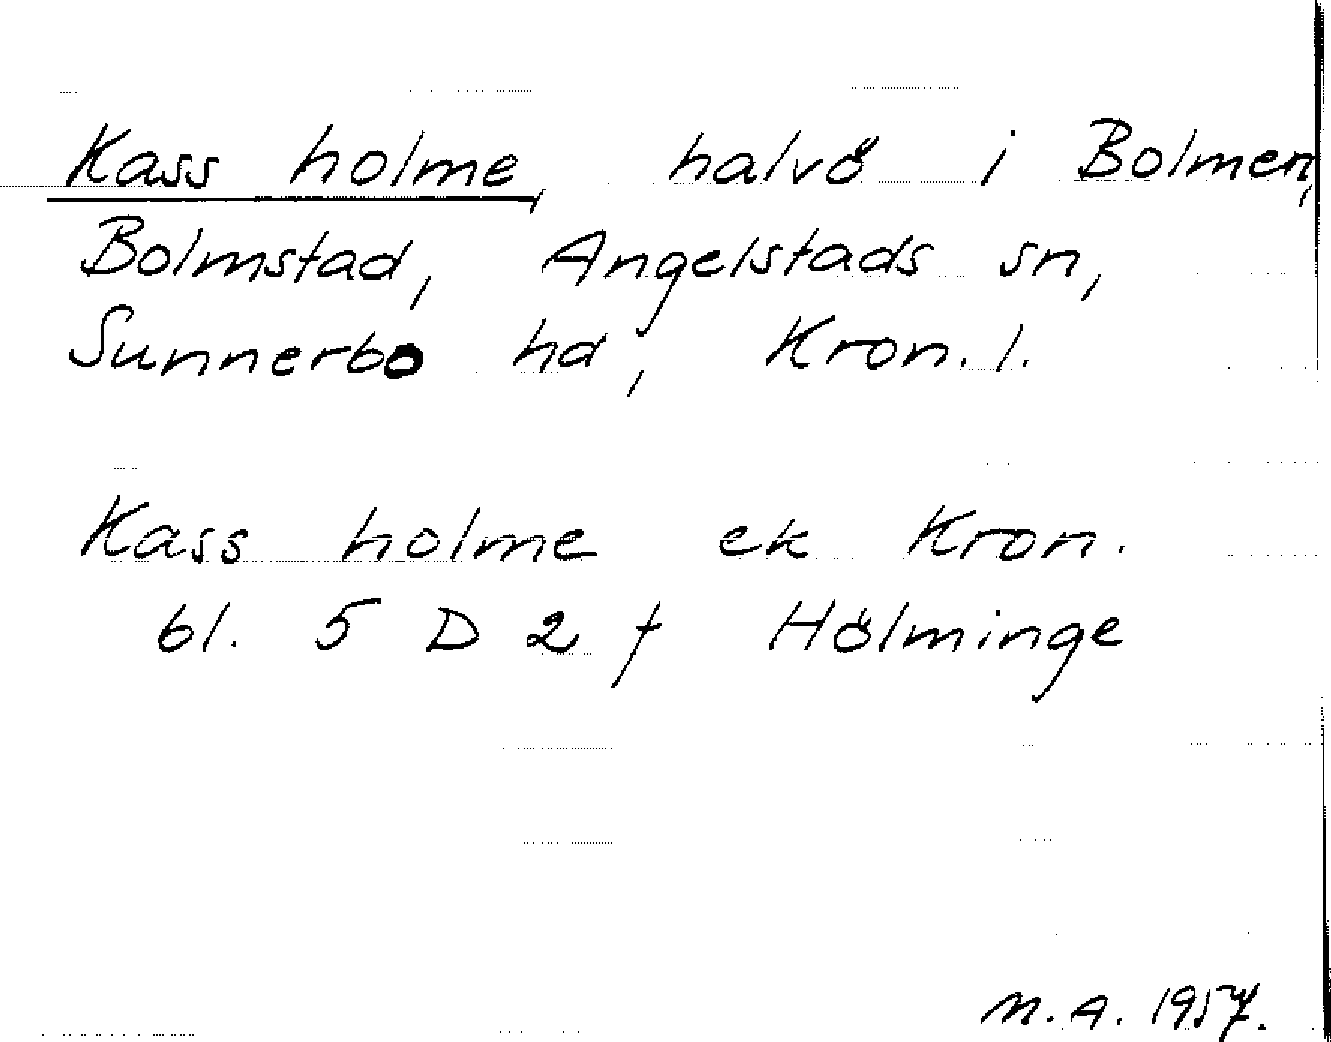 Kass holme, halvö i Bolmen,
Bolmstad, Angelstads sn,
Sunnerbo hd, Kron. l.
Kass holme ek Kron.
bl. 5 D 2 f Hölminge
N.A. 1957.